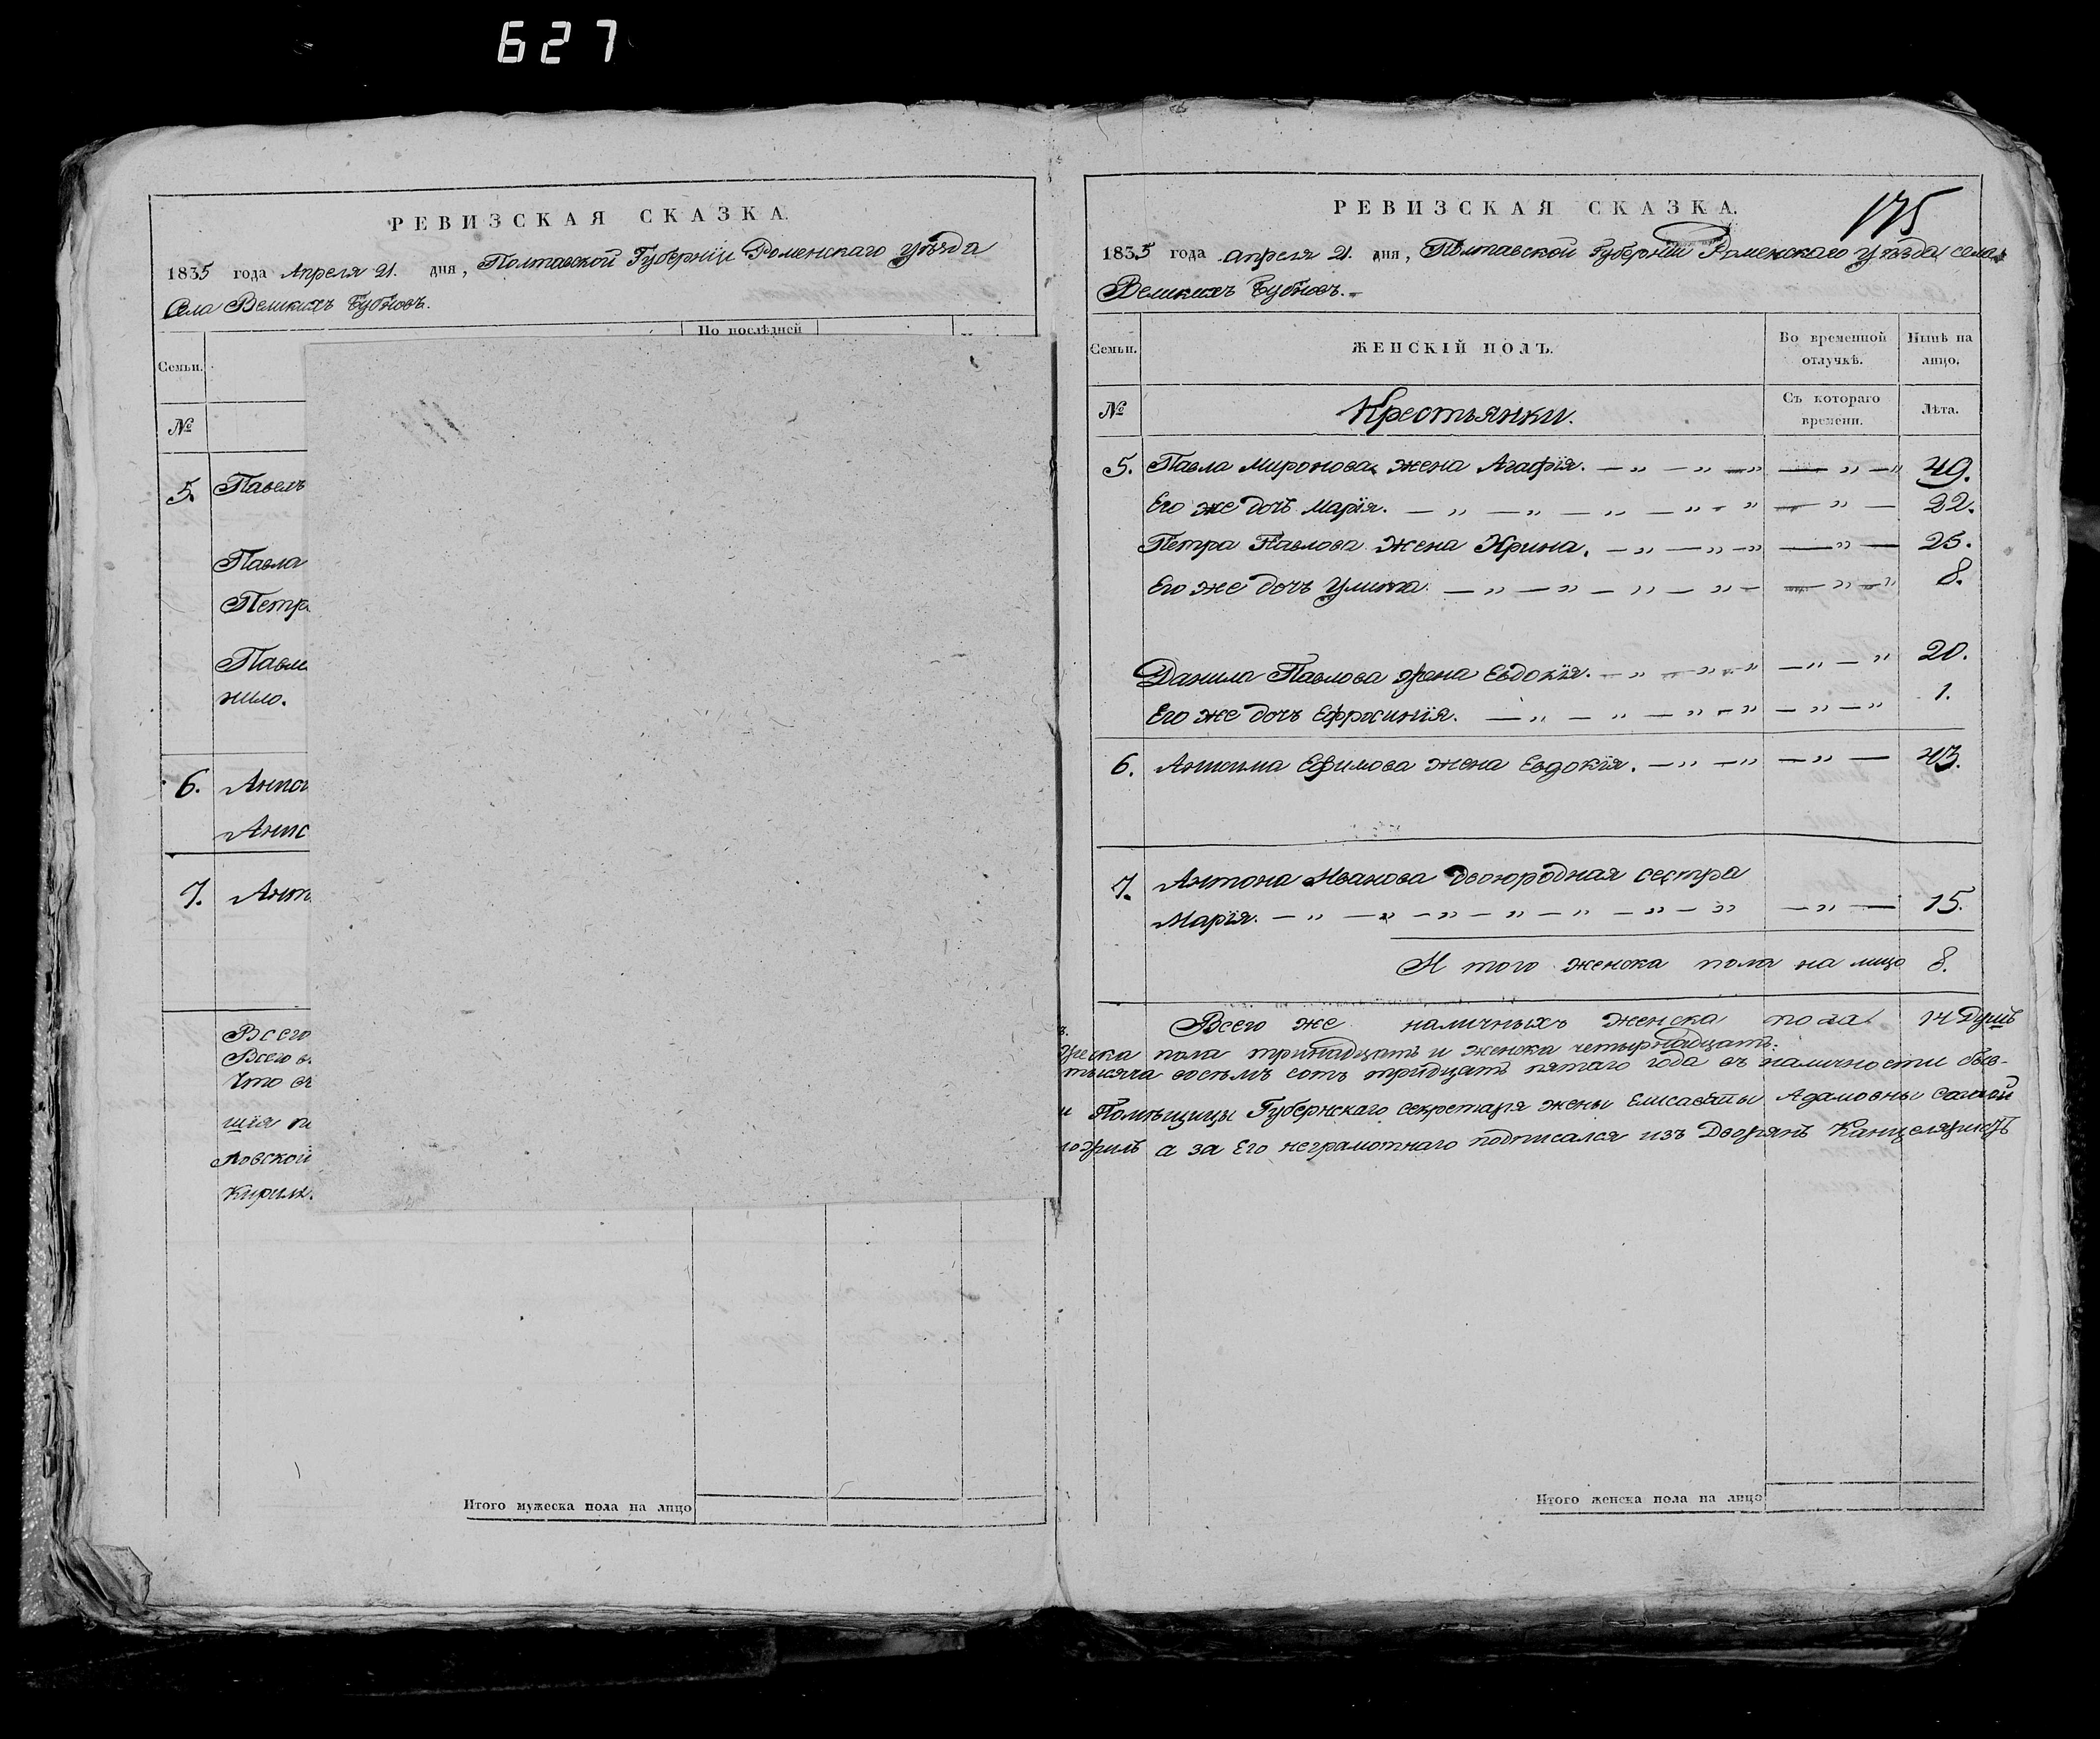 627
РЕВИЗСКАЯ СКАЗКА.
1835 года Апреля 21. дня, Полтавской Губерніи Роменскаго уѣзда
Села Великихъ Бубновъ.
По послѣдней
Семьи.
№
5. Павелъ
Павла
Петра
жило.
6.
7.
Всего
Что
Итого мужеска пола на лицо
РЕВИЗСКАЯ СКАЗКА.
175
1835 года апреля 21. дня, Полтавской Губерніи Роменскаго уѣзда села
Великихъ Бубновъ.
Семьи. ЖЕНСКІЙ ПОЛЪ. Во временной отлучкѣ. Нынѣ на лицо.
№ Крестьянки. Съ котораго времени. Лѣта.
5. Павла Миронова жена Агафія. 49.
Его же дочь Марія. 22.
Петра Павлова жена Ирина. 25.
Его же дочь Улита. 8.
Данила Павлова жена Евдокія. 20.
Его же дочь Ефросинія. 1.
6. Ефимова жена Евдокія. 43.
7. Антона Иванова двоюродная сестра
Марія. 15.
И того женска пола на лицо 8.
Всего же наличныхъ женска пола 14 душъ
пола тринадцать и женска четырнадцать.
тысяча восемь сотъ тридцать пятаго года въ наличности быв-
Помѣщицы Губернскаго секретаря жены Елисаветы Адамовны
а за Его неграмотнаго подписался изъ Дворянъ Канцеляристъ
Итого женска пола на лицо